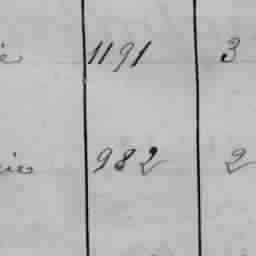 1191 3
982 2